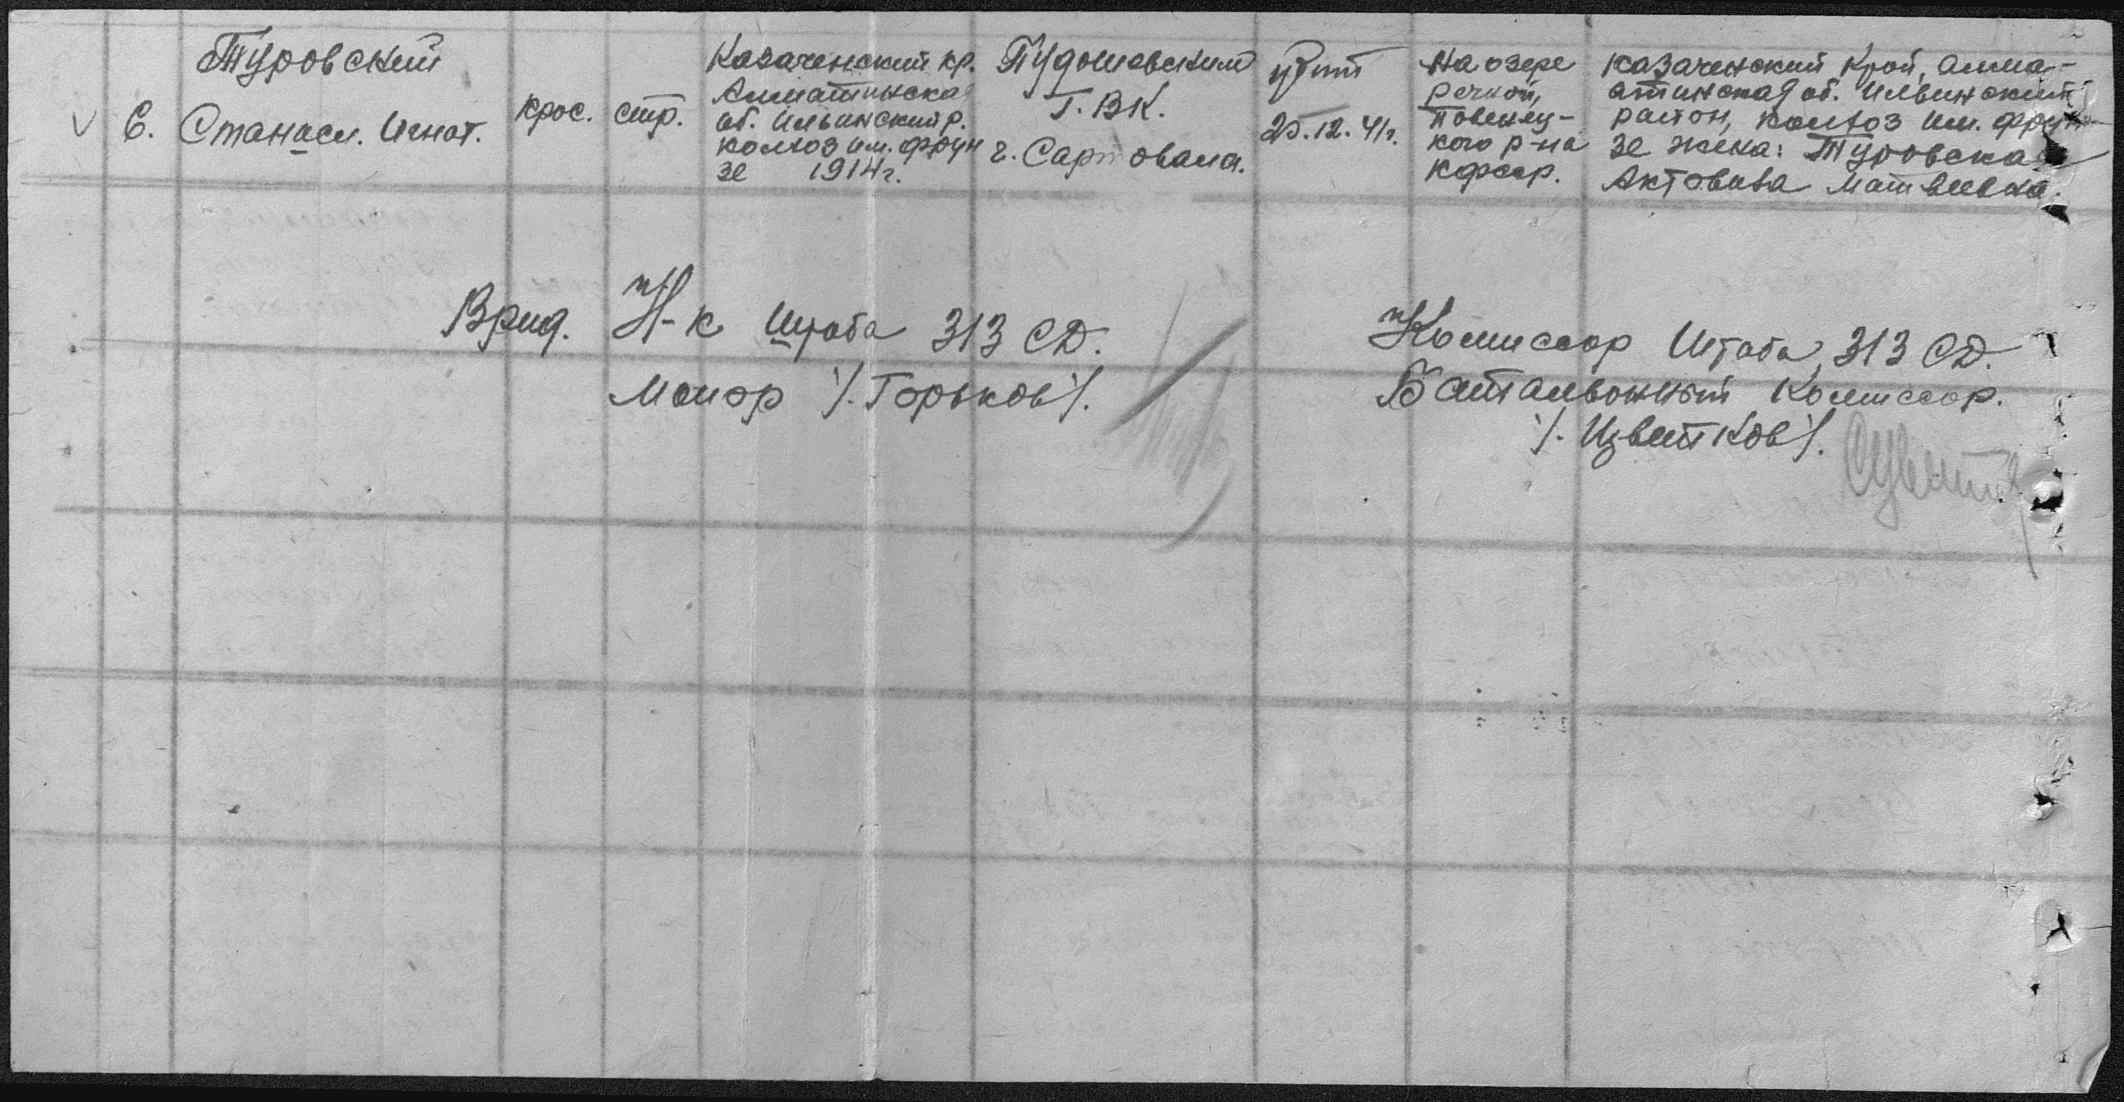 Туровский
V 6. Станасл. Игнат.
крас.
стр.
Казаченский кр.
Алматинская
об. Ильинский р.
колхоз им. Фрун
зе 1914 г.
Пудошовским
Г.В.К.
г. Сартовала.
убит
25.12.41г.
На озере
речной,
Повенец-
кого р-на
Кфсср.
Казаченский Край, Алма-
атинская об. Илвинский
район, колхоз им. Фрун
зе жена: Туровская
Матвеевна.
Врид. Н-к Штаба 313 СД.
Маиор /. Горьков/.
Комиссар Штаба 313 СД.
Баталвонный Комиссар.
/. Цветков/.